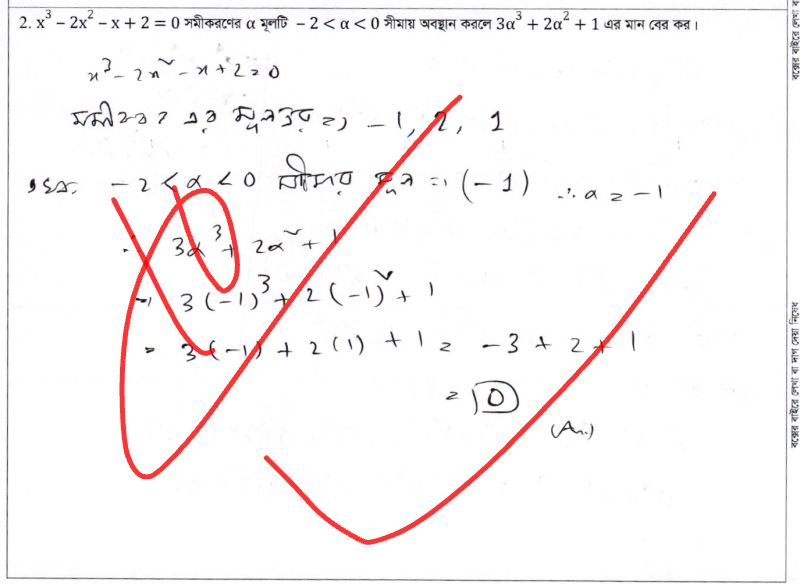 2. x³ − 2x² − x + 2 = 0 সমীকরণের α মূলটি − 2 < α < 0 সীমায় অবস্থান করলে 3α³ + 2α² + 1 এর মান বের কর।
x³ − 2x² − x + 2 = 0
সমীকরণ এর মূলত্রয় => −1, 2, 1
−2 < α < 0 সীমায় মূল = (−1) ∴ α = −1
∴ 3α³ + 2α² + 1
= 3(−1)³ + 2(−1)² + 1
= 3(−1) + 2(1) + 1 = −3 + 2 + 1
= 0
(An.)
বক্সের বাইরে লেখা বা দাগ দেয়া নিষেধ
বক্সের বাইরে লেখা ব